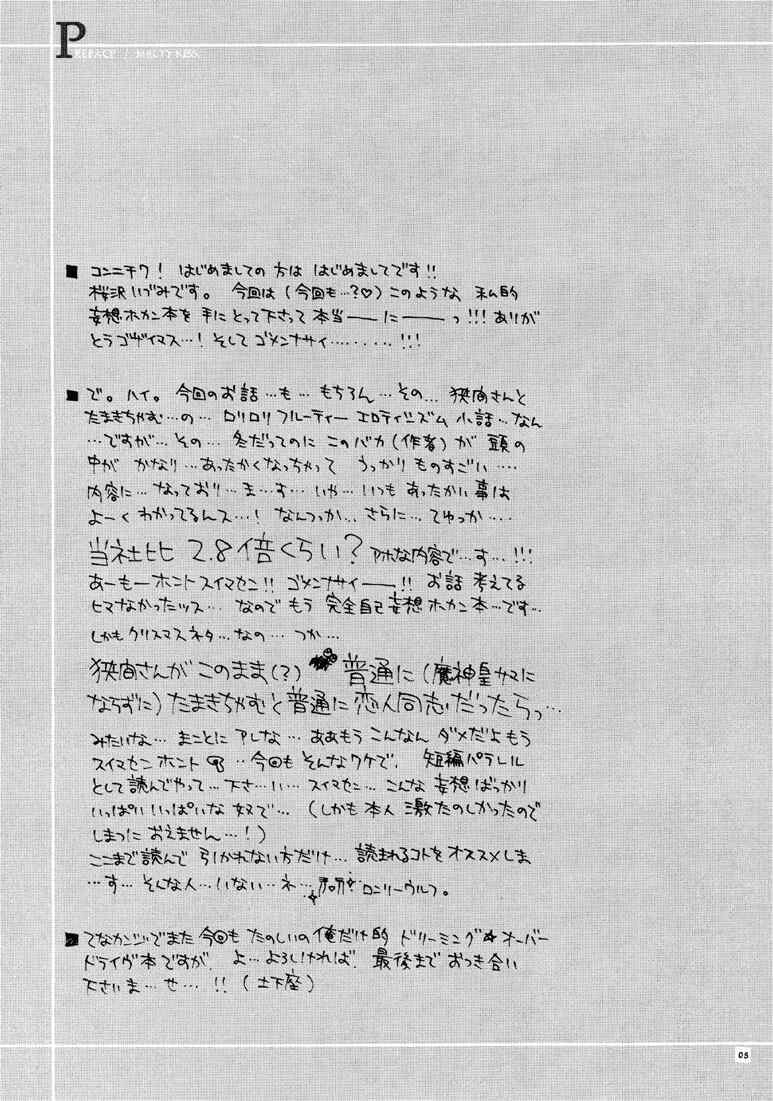 PREFACE / MELTY KISS
■ コンニチワ! はじめましての方は はじめましてです!!
桜沢いづみです。 今回は(今回も…?♡)このような 私的
妄想ホカン本を 手にとって下さって 本当——に——っ!!! ありが
とうゴザイマス…! そして ゴメンナサイ……...!!!
■ で。ハイ。今回のお話…も…もちろん…その… 狭間さんと
たまきちゃむ…の… ロリロリ フルーティー エロティシズム 小話…なん
…ですが… その… 冬だってのに このバカ(作者)が 頭の
中が かなり…あったかくなっちゃって うっかり ものすごい…
内容に…なっており…ま…す… いや… いつも あったかい事は
よーく わかってるんス…! なんつっか… さらに… てゆっか…
当社比 2.8倍くらい? アホな内容で…す…!!!
あーもーホント スイマセン!! ゴメンナサイ——!! お話 考えてる
ヒマなかったッス… なので もう 完全自己妄想ホカン本…です…
しかも クリスマスネタ…なの… つか…
狭間さんが このまま(?) 普通に(魔神皇サマに
ならずに)たまきちゃむと普通に 恋人同志だったらっ…
みたいな… まことに アレな… ああもう こんなん ダメだよ もう
スイマセン ホント …今回も そんなワケで、 短編パラレル
として読んでやって…下さ…い… スイマセン… こんな 妄想ばっかり
いっぱい いっぱいな 奴で… (しかも本人 激たのしかったので
しまつに おえません…!)
ここまで読んで 引かれない方だけ… 読まれるコトを オススメしま
…す… そんな人…いない…ネ… ロンリーウルフ。
■ てなカンジでまた 今回も たのしいの 俺だけ的 ドリーミング☆オーバー
ドライヴ本ですが、 よ…よろしければ、 最後まで おつき合い
下さいま…せ…!! (土下座)
05